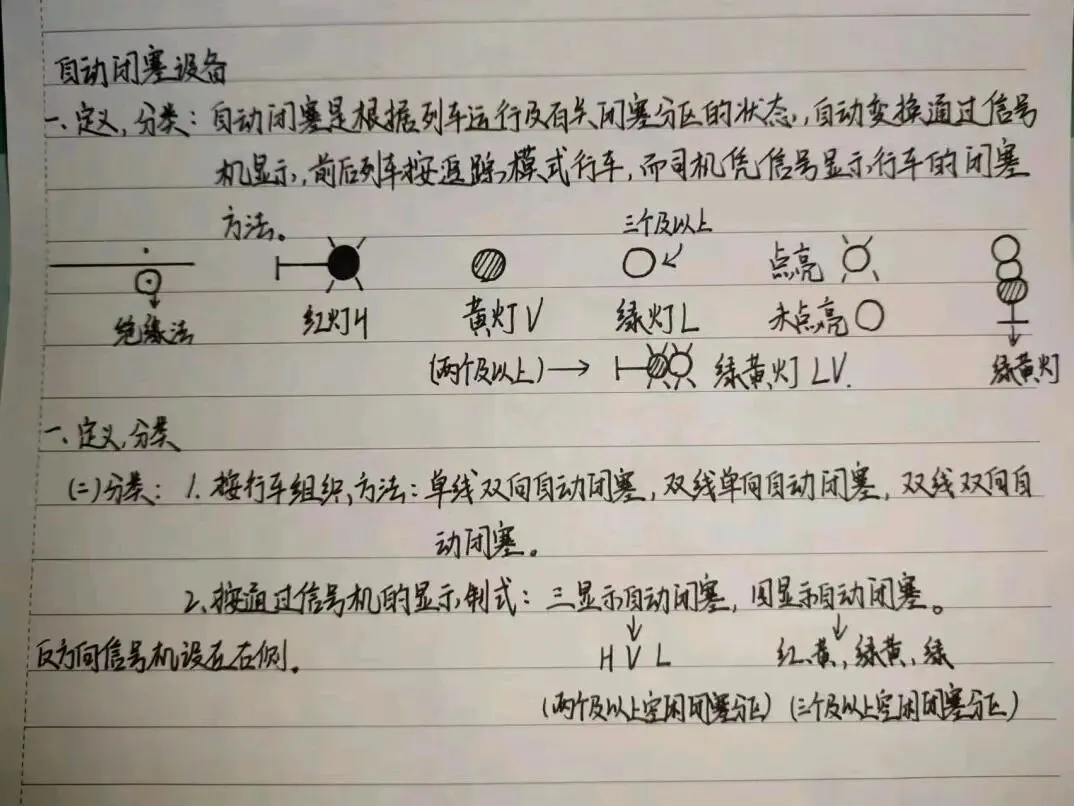 自动闭塞设备
一、定义,分类:自动闭塞是根据列车运行及有关闭塞分区的状态,自动变换通过信号
机显示,前后列车按追踪模式行车,而司机凭信号显示行车的闭塞
方法。
三个及以上
点亮
绝缘法 红灯H 黄灯V 绿灯L 未点亮
(两个及以上) 绿黄灯LV. 绿黄灯
一、定义,分类
(二)分类:1.按行车组织方法:单线双向自动闭塞,双线单向自动闭塞,双线双向自
动闭塞。
2、按通过信号机的显示制式:三显示自动闭塞,四显示自动闭塞。
反方向信号机设在右侧。 H V L 红、黄,绿黄,绿
(两个及以上空闲闭塞分区) (三个及以上空闲闭塞分区)